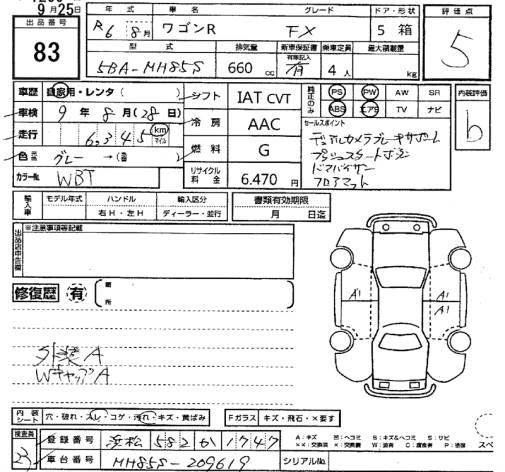 9月25日
出品番号
83
年式 車名 グレード ドア・形状 評価点
R6 8月 ワゴンR FX 5 箱
5
型式 排気量 新車保証書 乗車定員 最大積載量
有無記入
5BA-MH85S 660cc 有 4人 kg
車歴 自家用・レンタ( )
車検 9年8月(28日)
走行 6,345 km マイル
色 元色 グレー →( 替 )
カラーNo. WBT
シフト IAT CVT
冷房 AAC
燃料 G
リサイクル料金 6.470 円
純正のみ PS PW AW SR
ABS エアB TV ナビ
内装評価
b
セールスポイント
デュアルカメラブレーキサポート
プッシュスタートボタン
ドアバイザー
フロアマット
輸入車 モデル年式 ハンドル 輸入区分
右H・左H ディーラー・並行
書類有効期限
月 日迄
出品店申告欄 ※注意事項等記載
修復歴 有
箇所
A1 A1
A1
外装A
WキャップA
内装シート 穴・破れ・スレ・コゲ・汚れ・キズ・黄ばみ
Fガラス キズ・飛石・×要す
検査員
登録番号 浜松 582 か 1747
車台番号 MH85S-209619 シリアルNo.